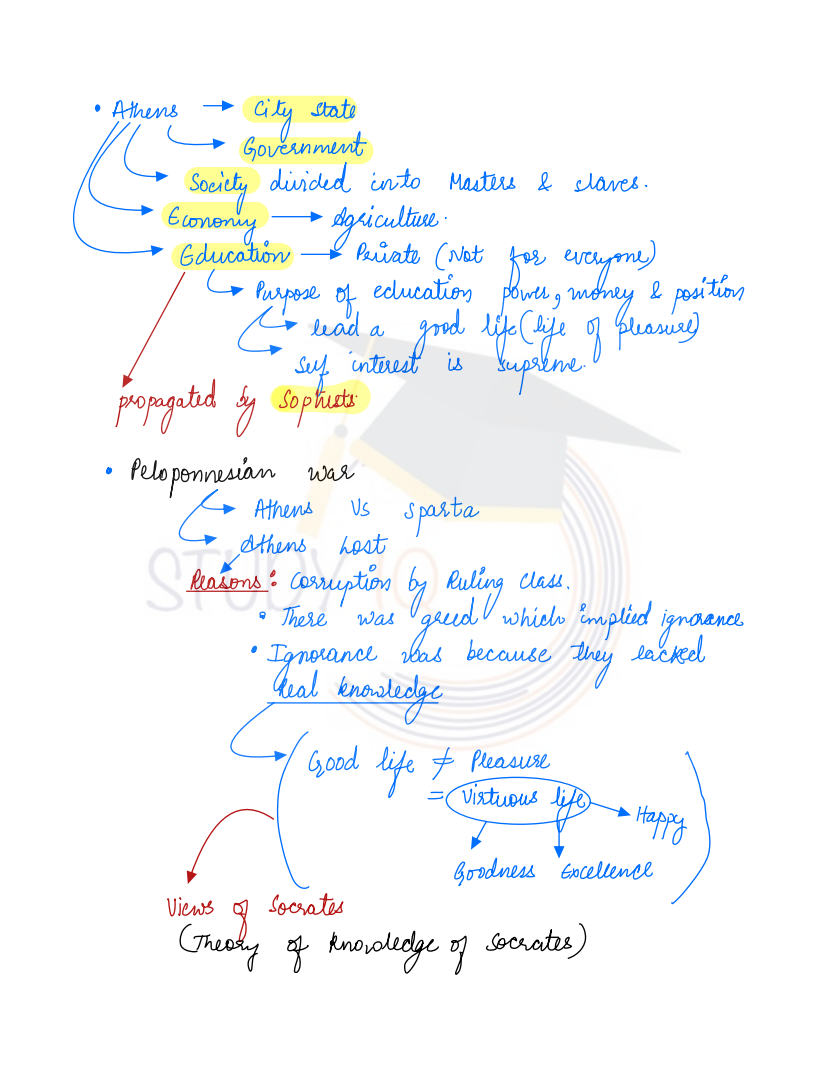 • Athens → City state
Government
Society divided into Masters & slaves.
Economy → Agriculture.
Education → Private (Not for everyone)
Purpose of education power, money & position
lead a good life (life of pleasure)
Self interest is supreme.
propagated by Sophists.
• Peloponnesian war
Athens Vs Sparta
Athens Lost
Reasons: Corruption by Ruling Class.
• There was greed which implied ignorance
• Ignorance was because they lacked
Real knowledge
Good life ≠ Pleasure
= Virtuous life
Happy
Goodness Excellence
Views of Socrates
(Theory of knowledge of Socrates)
STUDY IQ